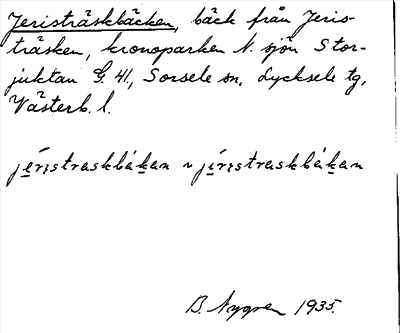 Jeristräskbäcken, bäck från Jeris-
träsken, kronoparken N. sjön Stor-
juktan G. 41, Sorsele sn, Lycksele tg,
Västerb. l.
jéristraskbàkan ~ jíristraskbàkan
B. Nygren 1935.